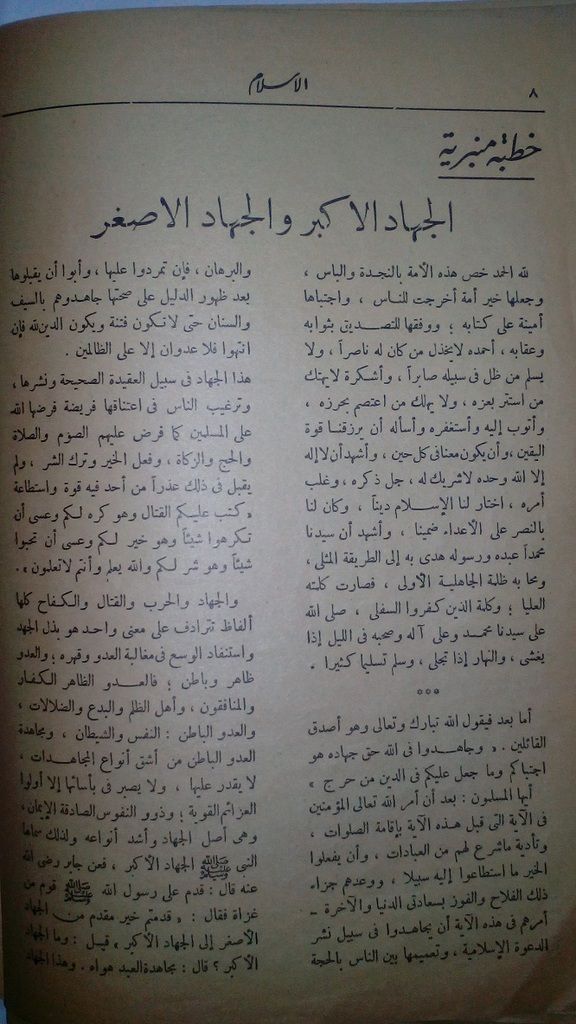 ٨
الاسلام
خطبة منبرية
الجهاد الاكبر والجهاد الاصغر
لله الحمد خص هذه الأمة بالنجدة والباس ،
وجعلها خير أمة أخرجت للناس ، واجتباها
أمينة على كتابه ؛ ووفقها للتصديق بثوابه
وعقابه ، أحمده لا يخذل من كان له ناصراً ، ولا
يسلم من ظل فى سبيله صابراً ، وأشكره لا يهتك
من استتر بعزه ، ولا يهلك من اعتصم بحرزه ،
وأتوب إليه وأستغفره وأسأله أن يرزقنا قوة
اليقين ، وأن يكون معنا فى كل حين ، وأشهد أن لا إله
إلا الله وحده لا شريك له ، جل ذكره ، وغلب
أمره ، اختار لنا الإسلام ديناً ، وكان لنا
بالنصر على الأعداء ضمينا ، وأشهد أن سيدنا
محمداً عبده ورسوله هدى به إلى الطريقة المثلى ،
ومحا به ظلمة الجاهلية الأولى ، فصارت كلمته
العليا ؛ وكلمة الذين كفروا السفلى ، صلى الله
على سيدنا محمد وعلى آله وصحبه فى الليل إذا
يغشى ، والنهار إذا تجلى ، وسلم تسليما كثيرا .
***
أما بعد فيقول الله تبارك وتعالى وهو أصدق
القائلين . « وجاهدوا فى الله حق جهاده هو
اجتباكم وما جعل عليكم فى الدين من حرج »
أيها المسلمون : بعد أن أمر الله تعالى المؤمنين
فى الآية التى قبل هذه الآية بإقامة الصلوات ،
وتأدية ما شرع لهم من العبادات ، وأن يفعلوا
الخير ما استطاعوا إليه سبيلا ، ووعدهم جزاء
ذلك الفلاح والفوز بسعادتى الدنيا والآخرة ـ
أمرهم فى هذه الآية أن يجاهدوا فى سبيل نشر
الدعوة الإسلامية ، وتعميمها بين الناس بالحجة
والبرهان ، فإن تمردوا عليها ، وأبوا أن يقبلوها
بعد ظهور الدليل على صحتها جاهدوهم بالسيف
والسنان حتى لا تكون فتنة ويكون الدين لله فإن
انتهوا فلا عدوان إلا على الظالمين .
هذا الجهاد فى سبيل العقيدة الصحيحة ونشرها ،
وترغيب الناس فى اعتناقها فريضة فرضها الله
على المسلمين كما فرض عليهم الصوم والصلاة
والحج والزكاة ، وفعل الخير وترك الشر ، ولم
يقبل فى ذلك عذراً من أحد فيه قوة واستطاعة
« كتب عليكم القتال وهو كره لكم وعسى أن
تكرهوا شيئاً وهو خير لكم وعسى أن تحبوا
شيئاً وهو شر لكم والله يعلم وأنتم لا تعلمون » .
والجهاد والحرب والقتال والكفاح كلها
ألفاظ تترادف على معنى واحد هو بذل الجهد
واستنفاد الوسع فى مغالبة العدو وقهره ؛ والعدو
ظاهر وباطن ؛ فالعدو الظاهر الكفار
والمنافقون ، وأهل الظلم والبدع والضلالات ،
والعدو الباطن : النفس والشيطان ، ومجاهدة
العدو الباطن من أشق أنواع المجاهدات ،
لا يقدر عليها ، ولا يصبر فى بأسائها إلا أولوا
العزائم القوية ؛ وذوو النفوس الصادقة الإيمان ،
وهى أصل الجهاد وأشد أنواعه ولذلك سماها
النبى ﷺ الجهاد الأكبر ، فعن جابر رضى الله
عنه قال : قدم على رسول الله ﷺ قوم من
غزاة فقال : « قدمتم خير مقدم من الجهاد
الأصغر إلى الجهاد الأكبر » قيل : وما الجهاد
الأكبر ؟ قال : مجاهدة العبد هواه . وهذا الجهاد